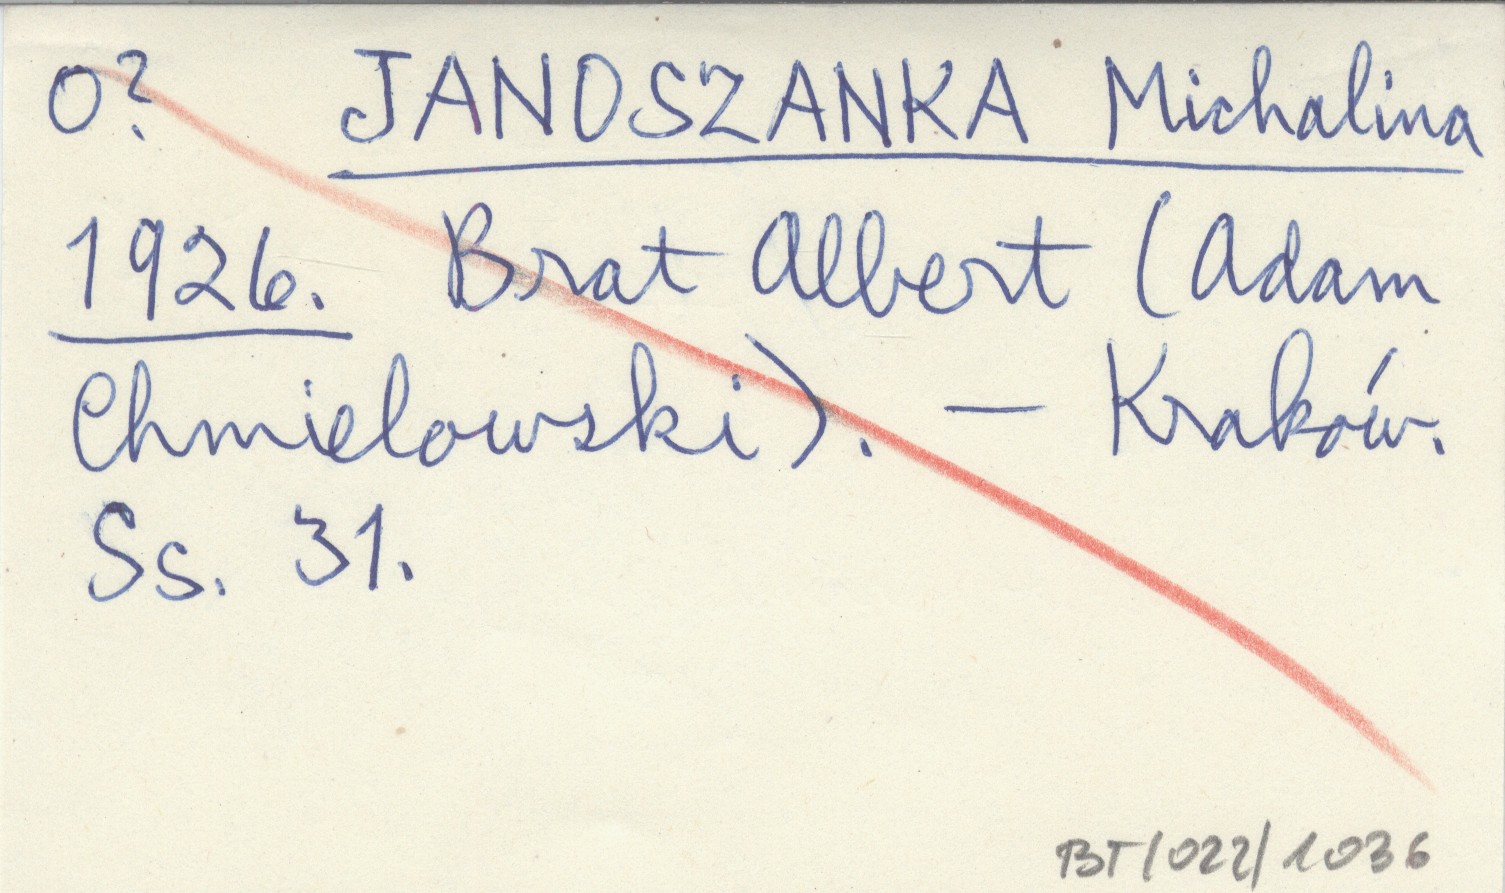 O? JANOSZANKA Michalina
1926. Brat Albert (Adam
Chmielowski). — Kraków.
Ss. 31.
BT/022/1036